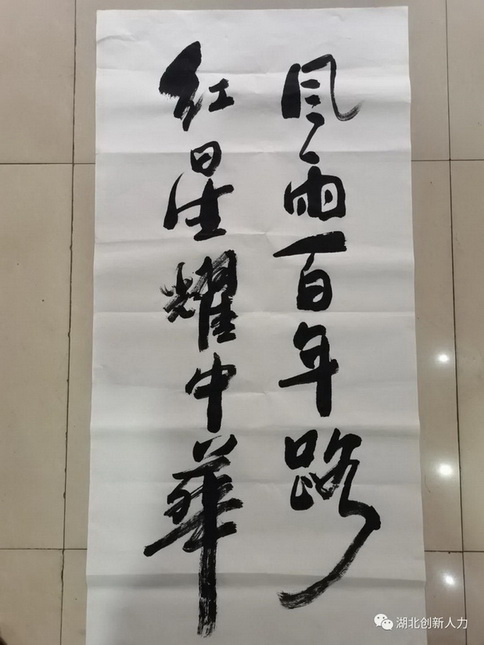 风雨百年路
红星耀中华
湖北创新人力